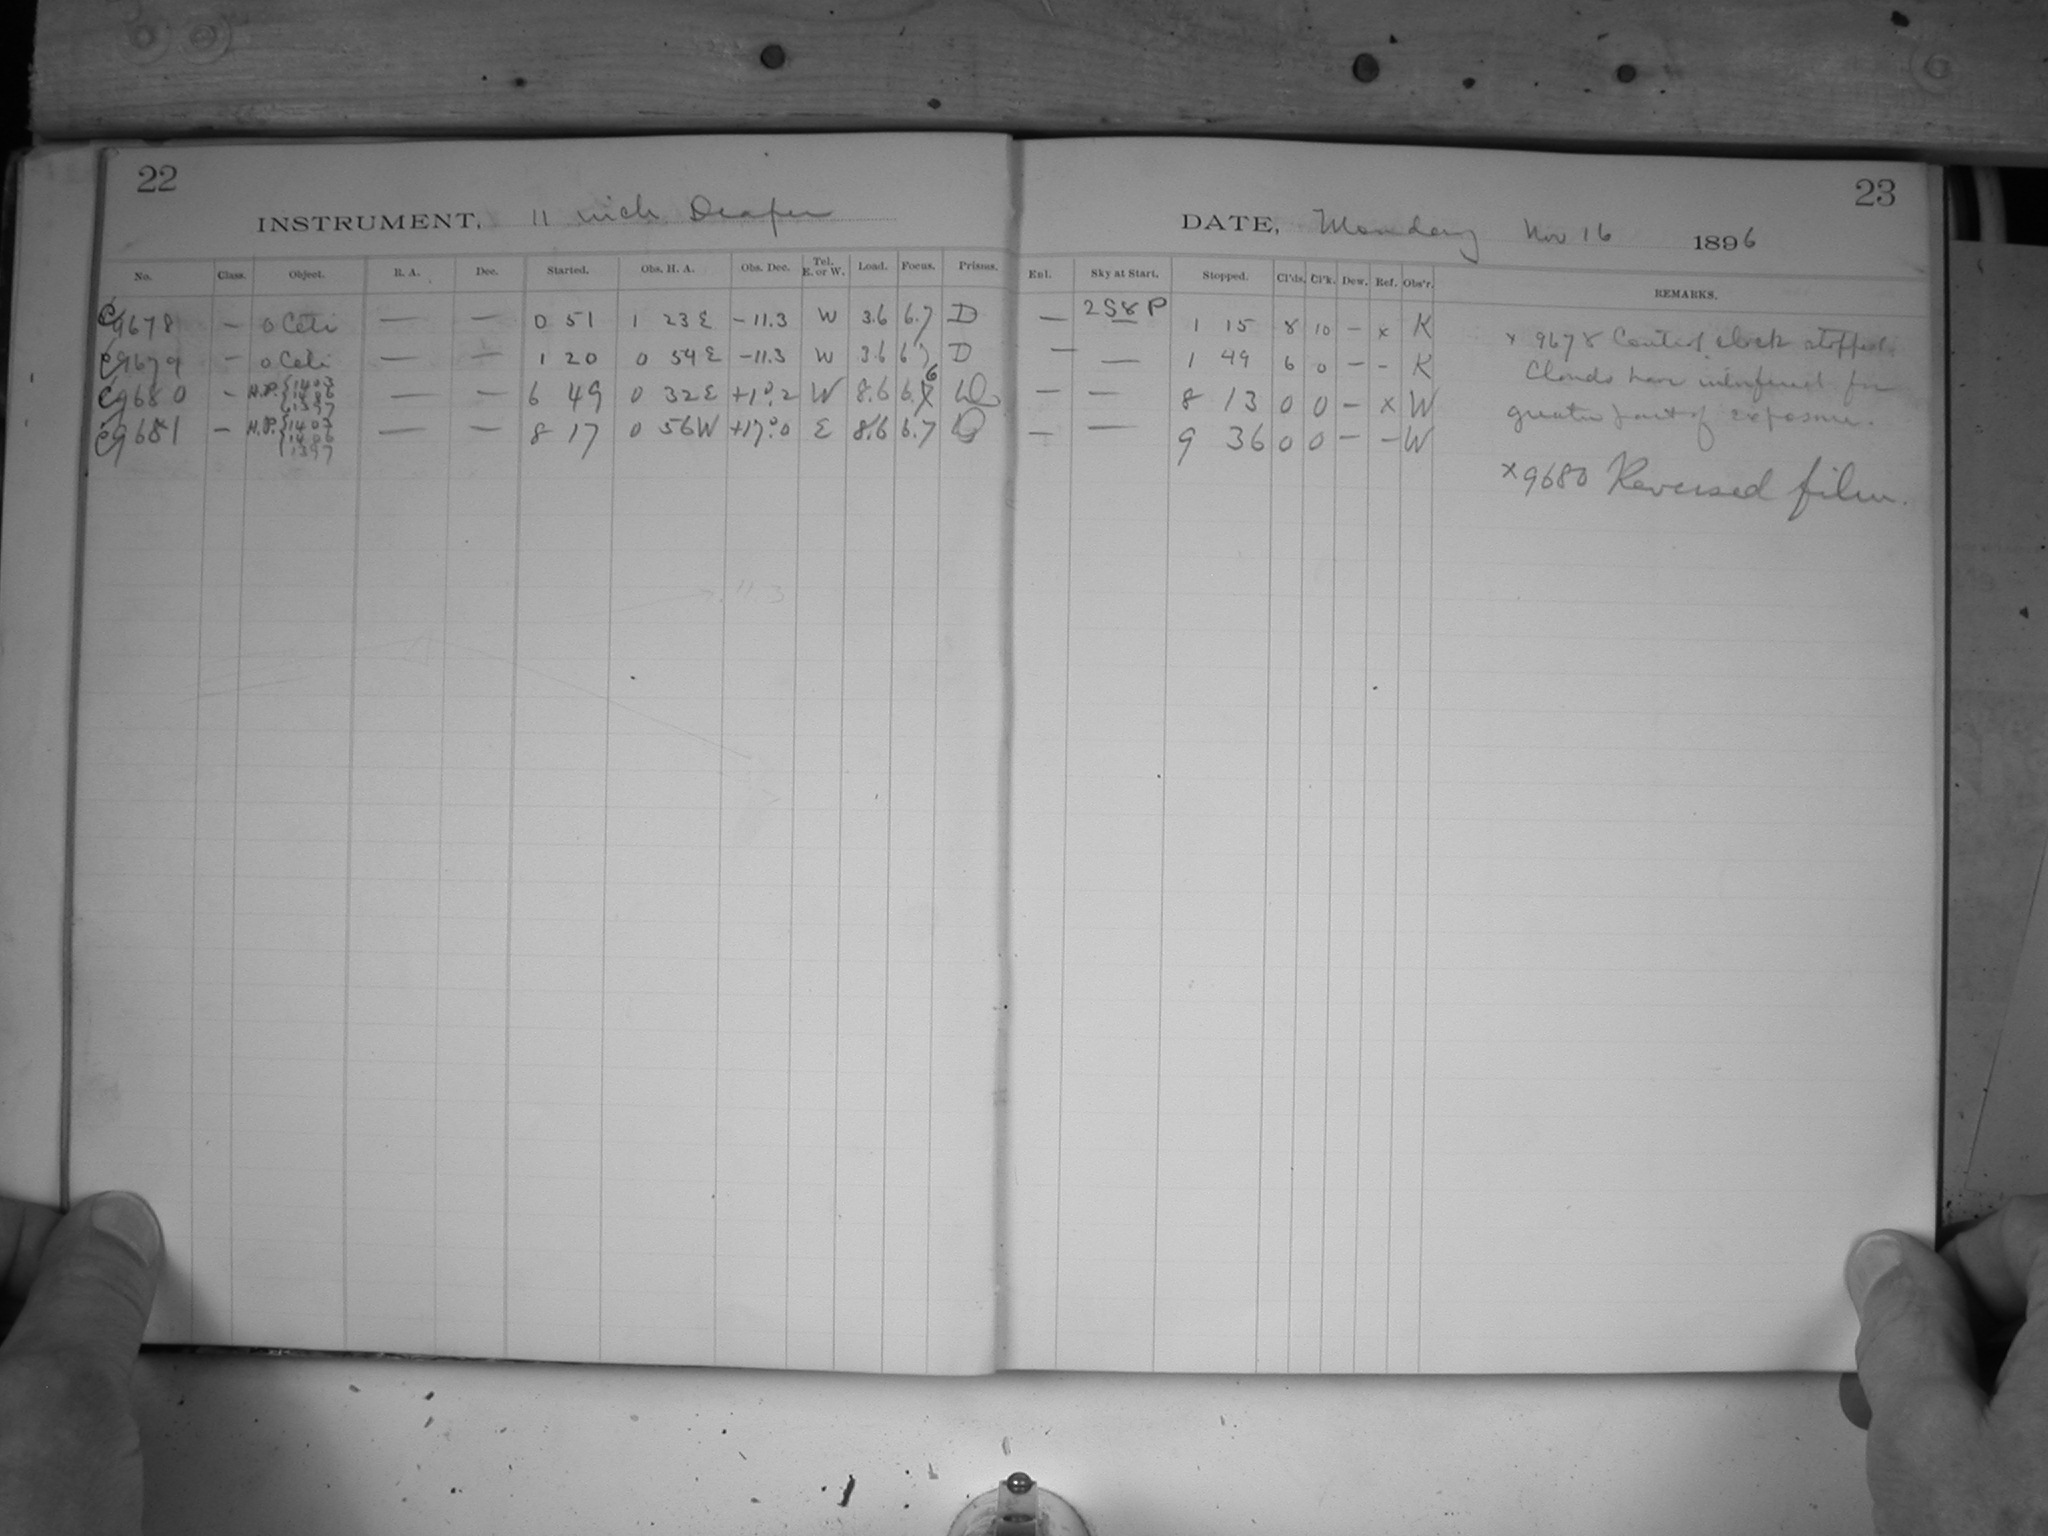 22
INSTRUMENT, 11 inch Draper
No. Class. Object. R. A. Dec. Started. Obs. H. A. Obs. Dec. Tel. E. or W. Load. Focus. Prisms.
C9678 — o Ceti — — 0 51 1 23 E -11.3 W 3.6 6.7 D
C9679 — o Ceti — — 1 20 0 54 E -11.3 W 3.6 6.7 D
C9680 — H.P. {1407 1406 1397 — — 6 49 0 32 E +1°.2 W 8.6 6.6
C9681 — H.P. {1407 1406 1397 — — 8 17 0 56 W +17°.0 E 8.6 6.7
23
DATE, Monday Nov 16 1896
Enl. Sky at Start. Stopped. Cl'ds. Cl'k. Dew. Ref. Obs'r. REMARKS.
— 2 S 8 P 1 15 8 10 — x K
— — 1 49 6 0 — - K
— — 8 13 0 0 — x W
— — 9 36 0 0 — - W
x 9678 Control clock stopped.
Clouds have interfered for
greater part of exposure.
x 9680 Reversed film.